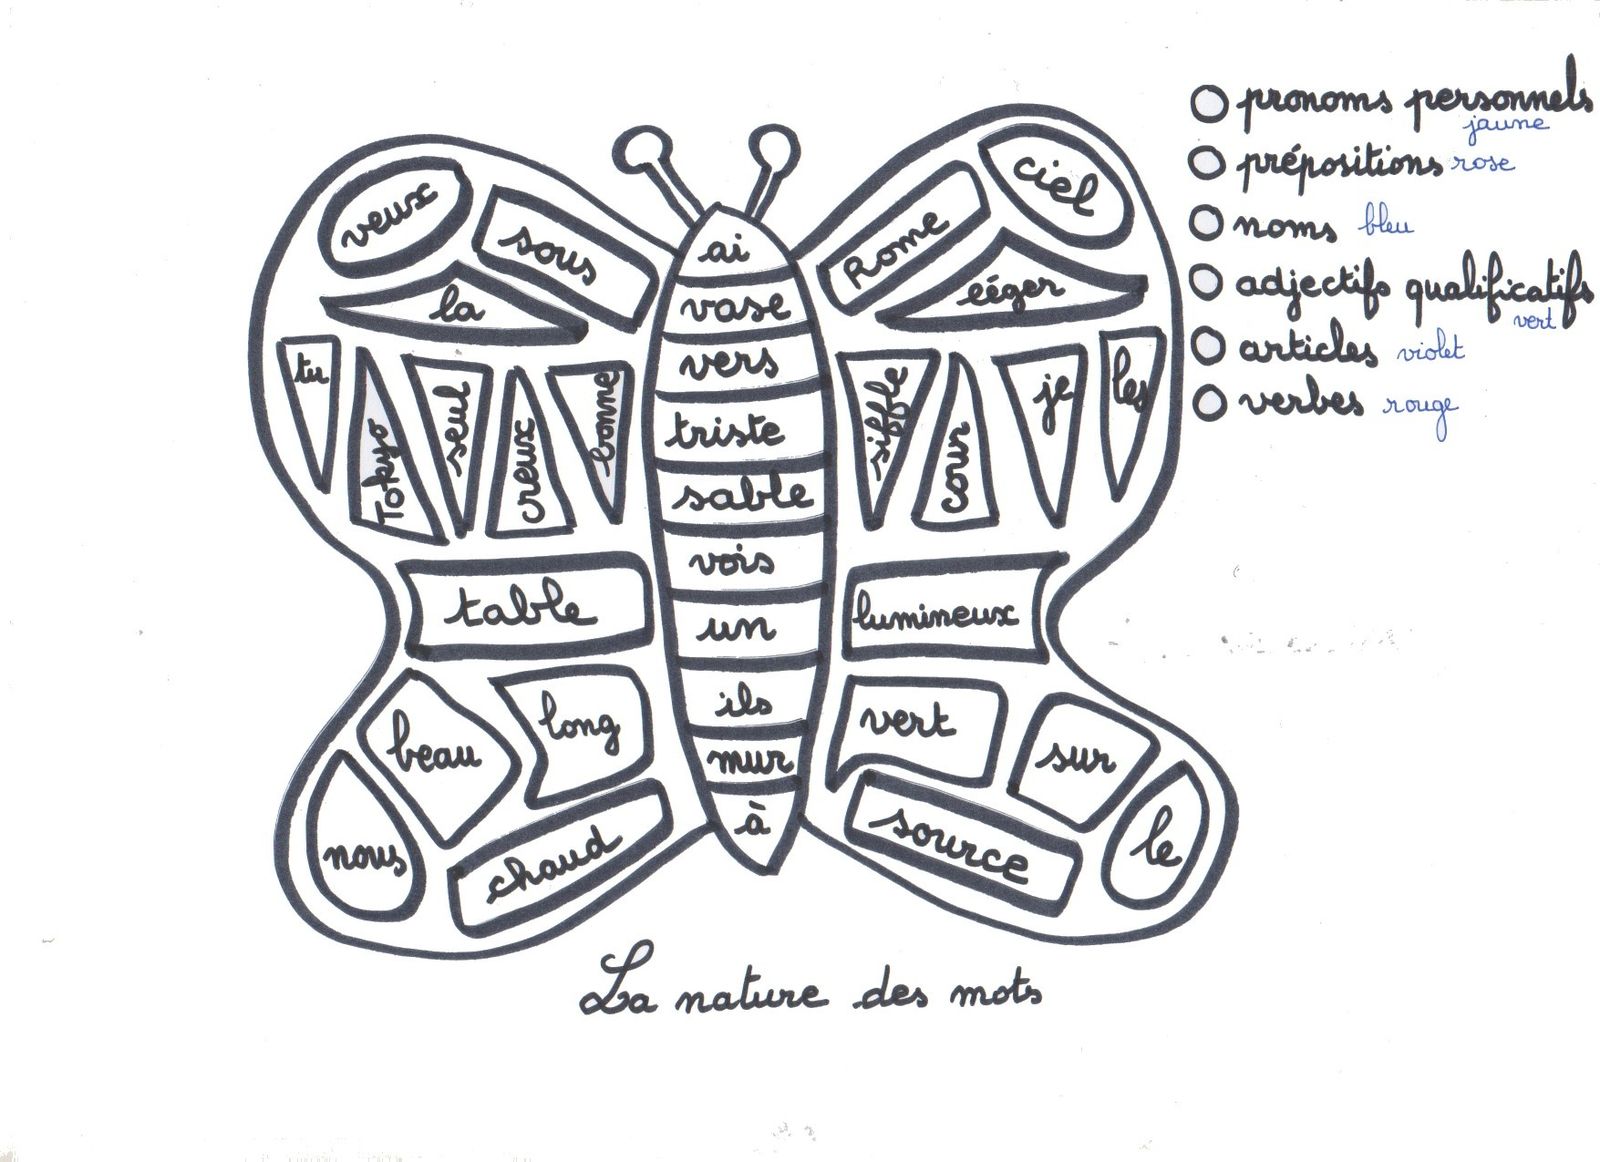 pronoms personnels
jaune
prépositions rose
noms bleu
adjectifs qualificatifs
vert
articles violet
verbes rouge
veux
sous
la
tu
Tokyo
seul
creux
bonne
table
beau
long
nous
chaud
ai
vase
vers
triste
sable
vois
un
ils
mur
à
Rome
ciel
léger
siffle
cour
je
les
lumineux
vert
sur
source
le
La nature des mots